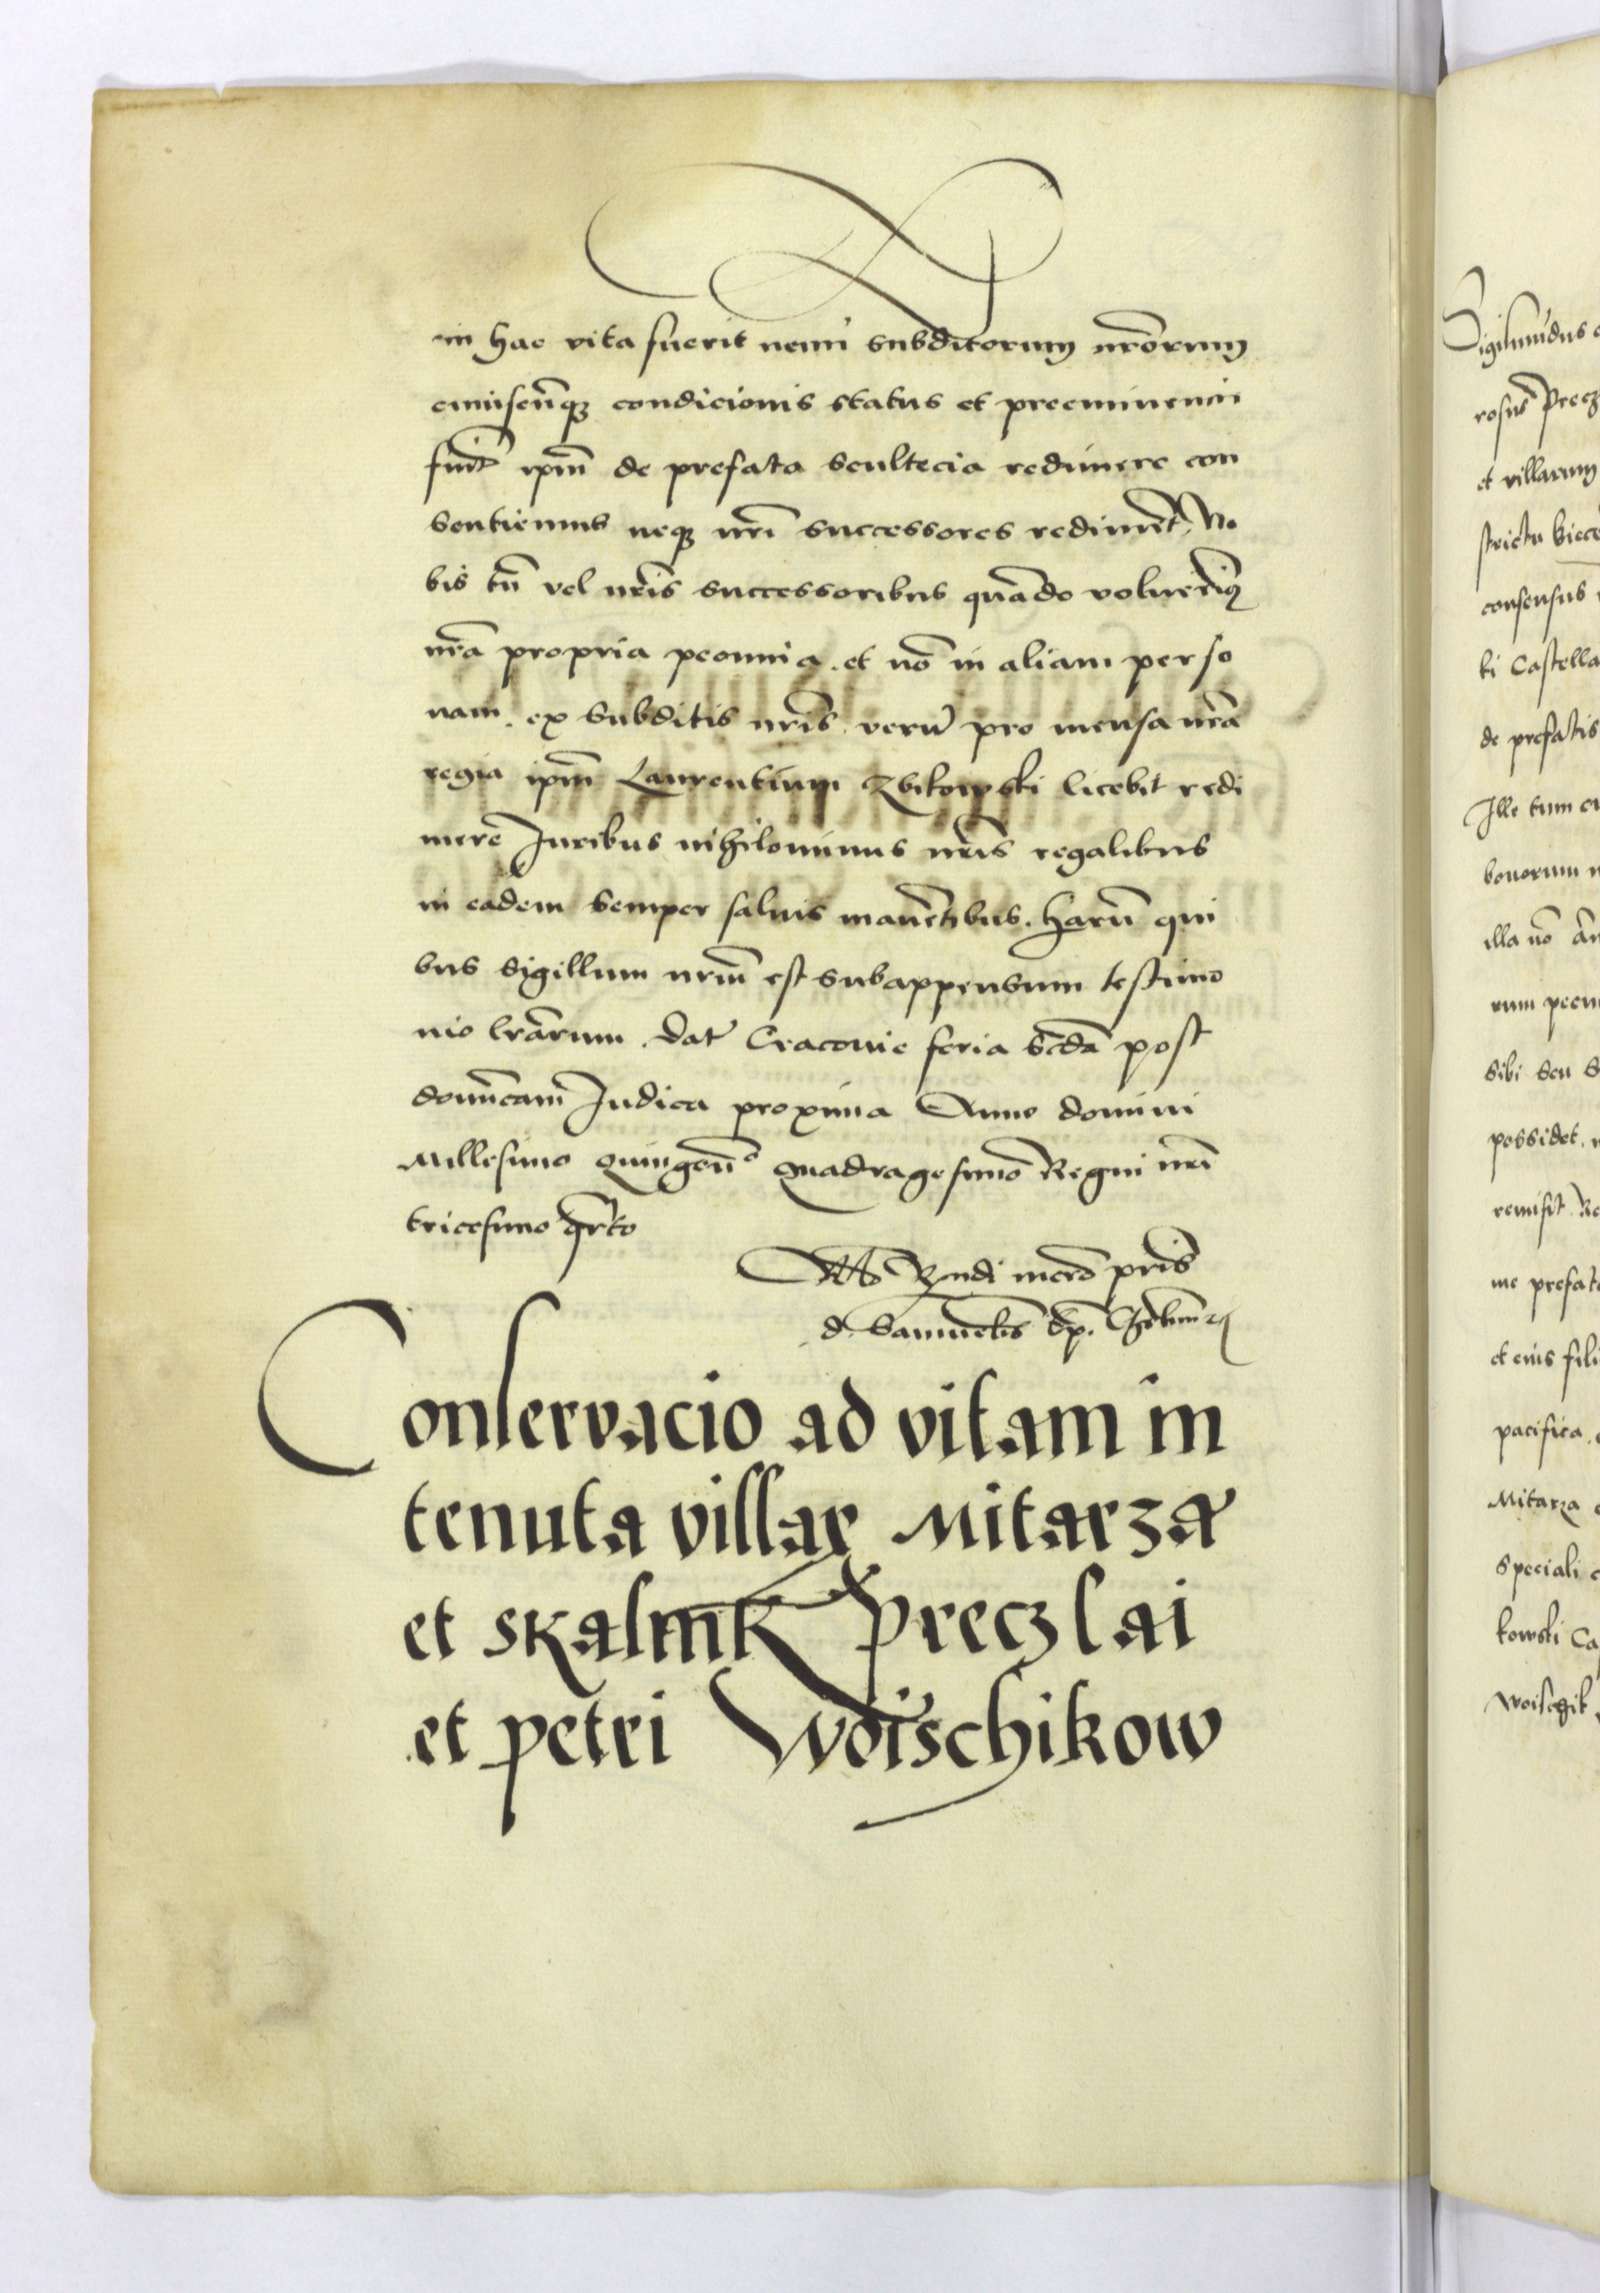 in hac vita fuerit nemi subditorum nrõrum
cuiuscũqꝫ condicionis status et preeminencie
fuit ipm̃ de prefata scultecia redimere con
sentiemus neqꝫ nrĩ successores rediment. No
bis tñ vel nrĩs successoribus quãdo voluerimꝰ
nrã propria pecunia. et nõ in aliam perso
nam. ex subditis nrĩs. verũ pro mensa nrã
regia ipm̃ Laurentium Zbikowski licebit redi
mere Juribus nihilominus nrĩs regalibus
in eadem semper saluis manẽtibus. Harũ qui
bus sigillum nrm̃ est subappensum testimo
nio lrãrum. Dat̃ Cracovie feria scdã post
domĩcam Judica proxima Anno domini
Millesimo quingẽño quadragesimo Regni nrĩ
tricesimo qrto
Rñdi
d. Samuelis Ep.
Conservacio ad vitam in
tenuta villaꝝ Mitarza
et Skalnik Preczlai
et Petri Woischikow
Sigismundus
rosus Precz
et villarum
strictu Biecẽ
consensus
ki Castella
de prefatis
Ille tum cu
bonorum
illa nõ
rum pecu
sibi seu s
possidet.
remisit. Re
me prefat
et eius fili
pacifica.
Mitarza
speciali c
kowski Ca
Woischik